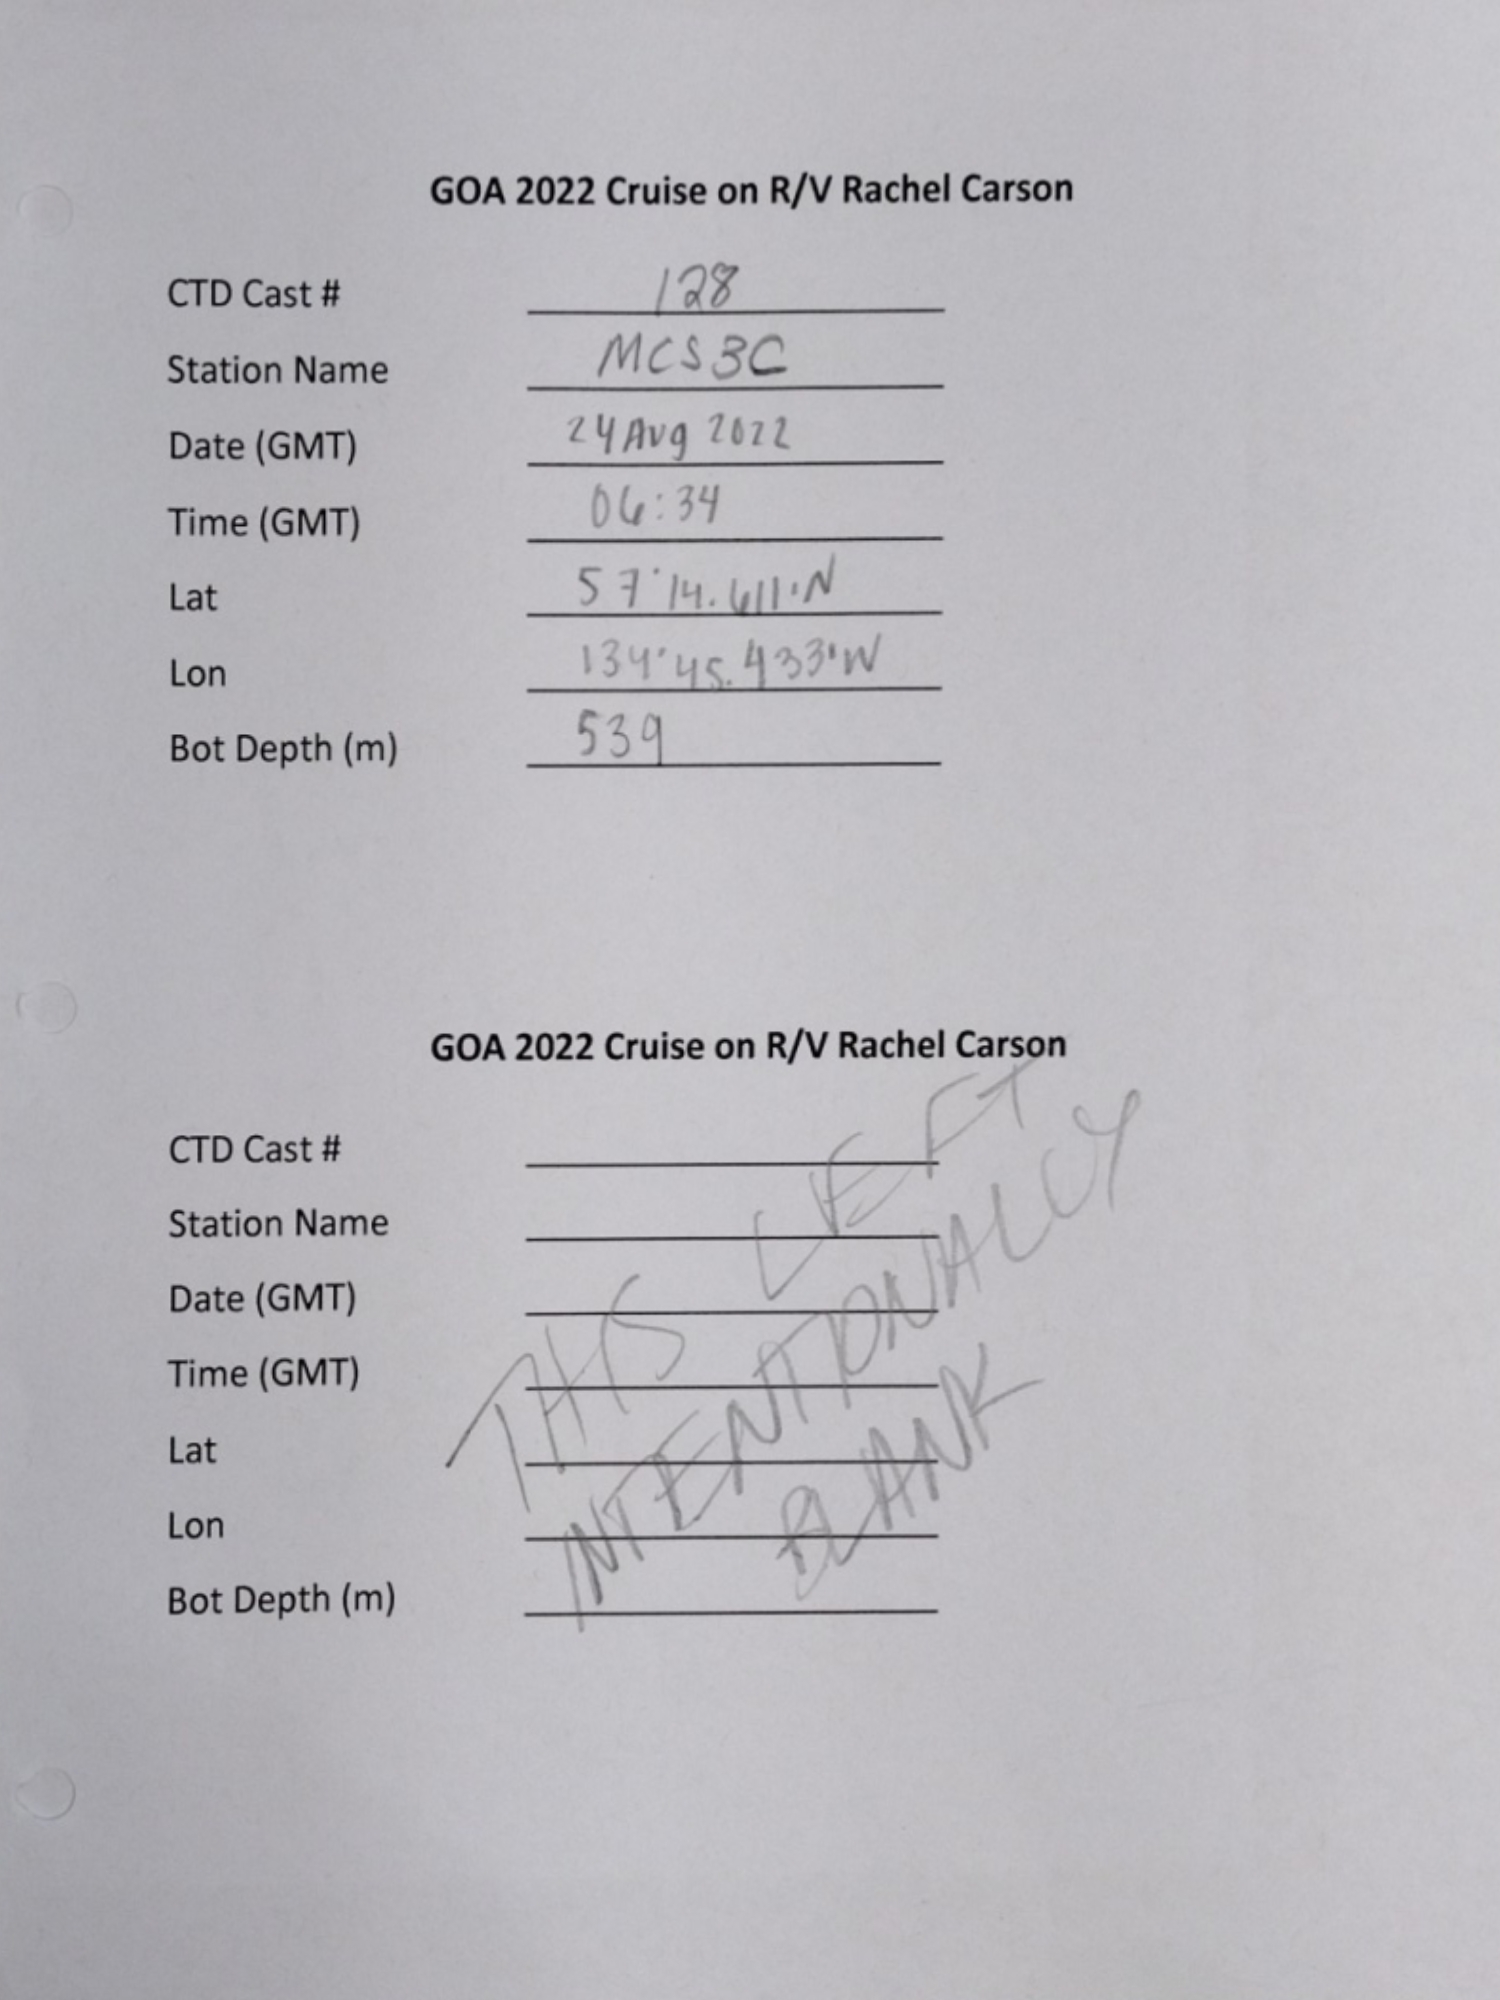 GOA 2022 Cruise on R/V Rachel Carson
CTD Cast # 128
Station Name MCS3C
Date (GMT) 24 Aug 2022
Time (GMT) 06:34
Lat 57°14.611'N
Lon 134°45.433'W
Bot Depth (m) 539
GOA 2022 Cruise on R/V Rachel Carson
CTD Cast #
Station Name
Date (GMT)
Time (GMT)
Lat
Lon
Bot Depth (m)
THIS LEFT
INTENTIONALLY
BLANK